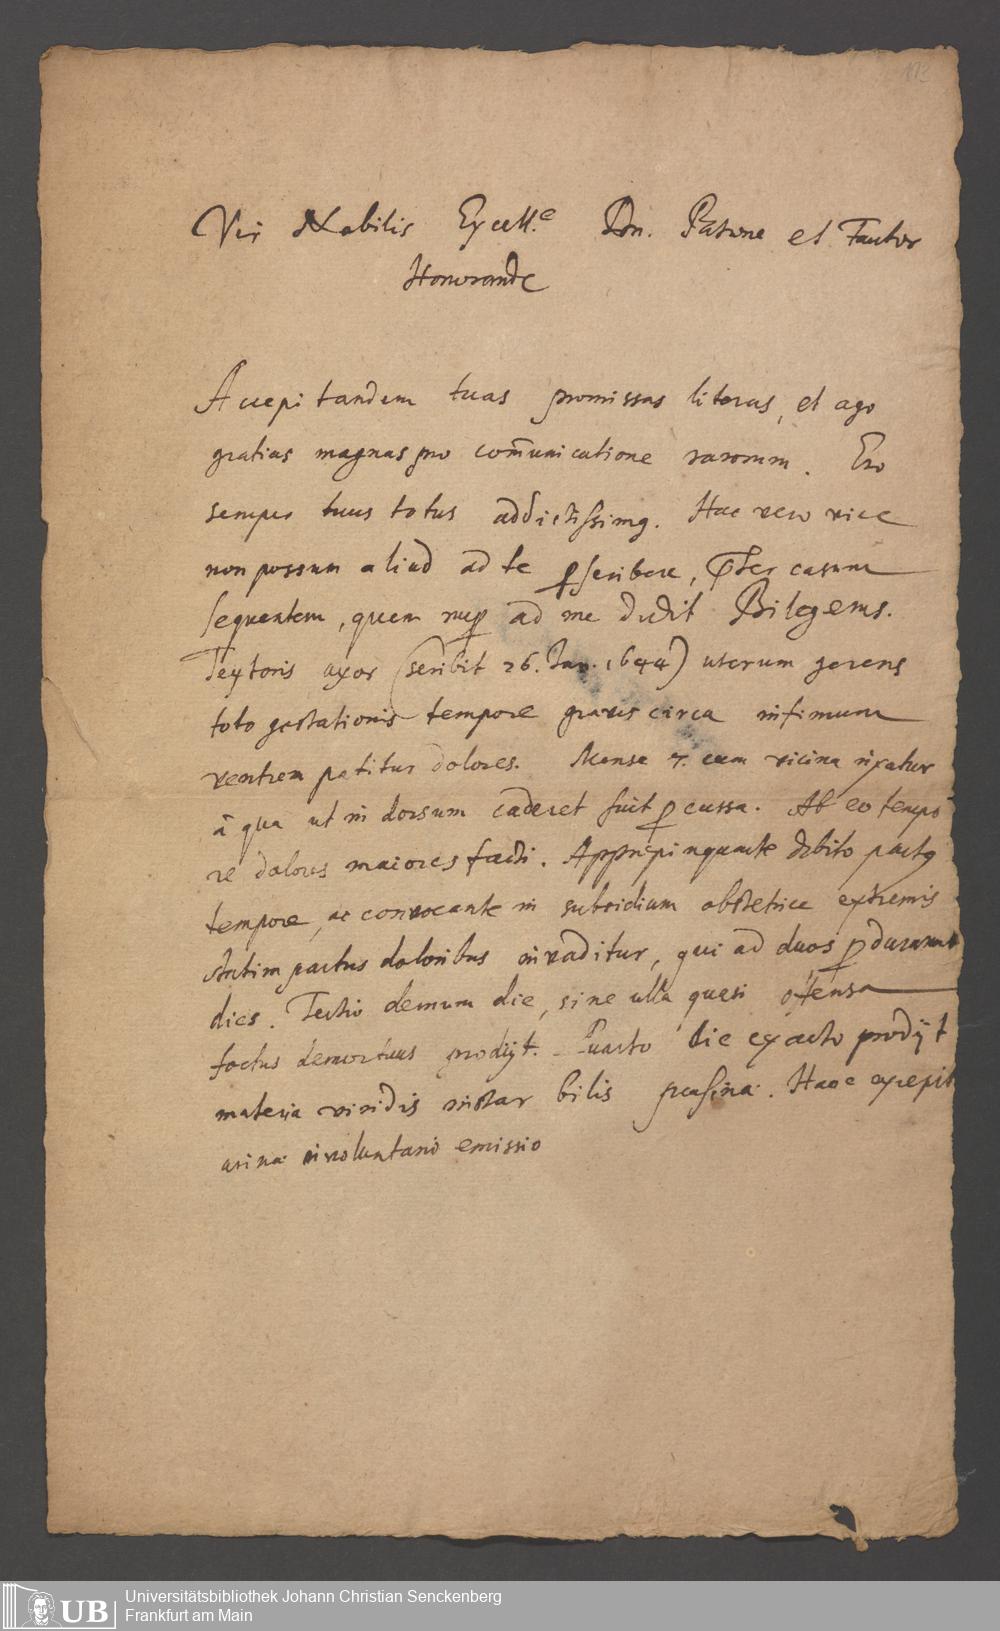 113
Vir Nobilis Excell.e Dn. Patrone et Fautor
Honorande
Accepi tandem tuas promissas literas, et ago
gratias magnas pro com̄unicatione rarorum. Ero
semper tuus totus addictissimꝰ. Hac vero vice
non possum aliud ad te ꝑscribere, p̄ter casum
sequentem, quem nuꝑ ad me dedit Bilgerus.
Textoris uxor (scribit 26. Jan. 1644) uterum gerens
toto gestationis tempore graves circa infimum
ventrem patitur dolores. Mense 7. cum vicina rixatur
à qua ut in dorsum caderet fuit ꝑcussa. Ab eo tempo
re dolores maiores facti. Appropinquante debito partꝰ
tempore, ac convocante in subsidium obstetrice extremis
statim partus doloribus invaditur, qui ad duos ꝑdurarunt
dies. Tertio demum die, sine ulla quasi offensa
foetus demortuus prodijt. Quarto die exacto prodijt
materia viridis instar bilis prasinae. Hanc excepit
urinae involuntario emissio
UB Universitätsbibliothek Johann Christian Senckenberg
Frankfurt am Main